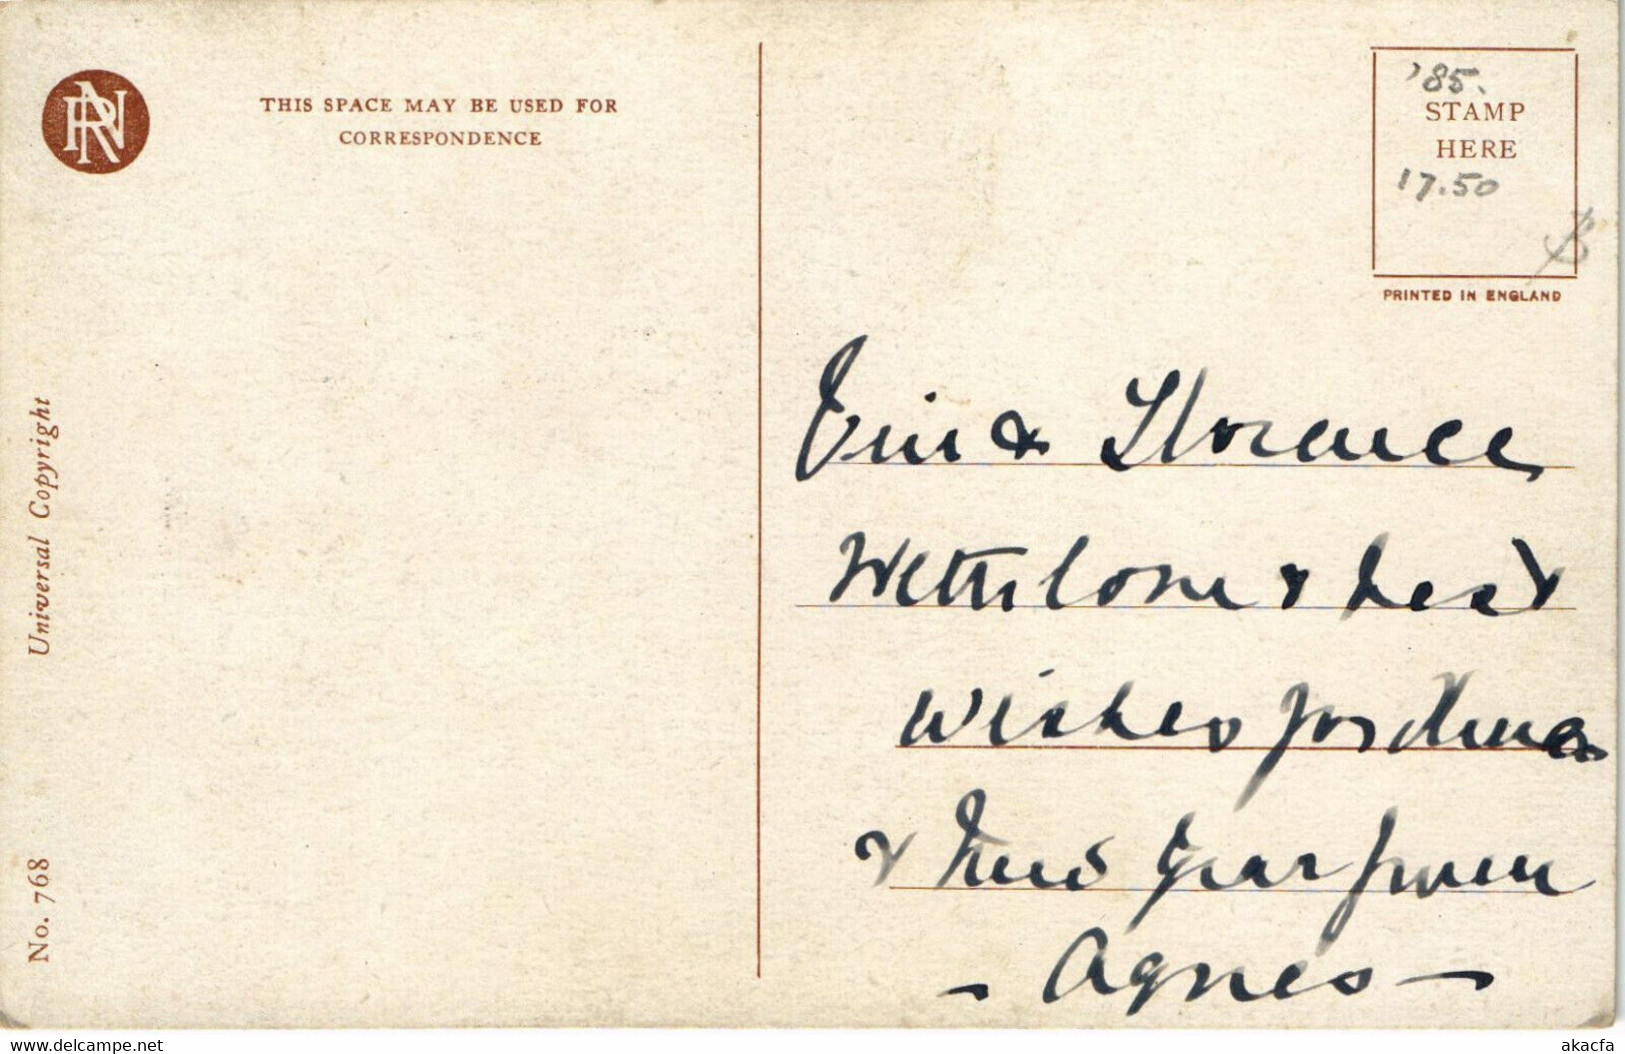 RN
THIS SPACE MAY BE USED FOR
CORRESPONDENCE
'85.
STAMP
HERE
17.50
PRINTED IN ENGLAND
Universal Copyright
No. 768
& Florence
& best
wishes for Xmas
& New Year from
- Agnes -
www.delcampe.net
akacfa